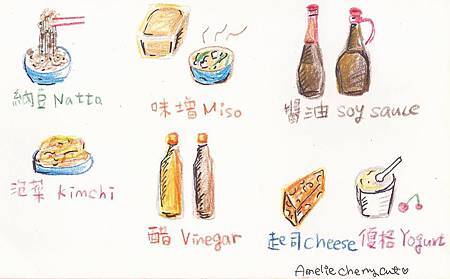 納豆 Natto
味增 Miso
醬油 soy sauce
泡菜 kimchi
醋 Vinegar
起司 cheese
優格 Yogurt
Ameliecherrycute